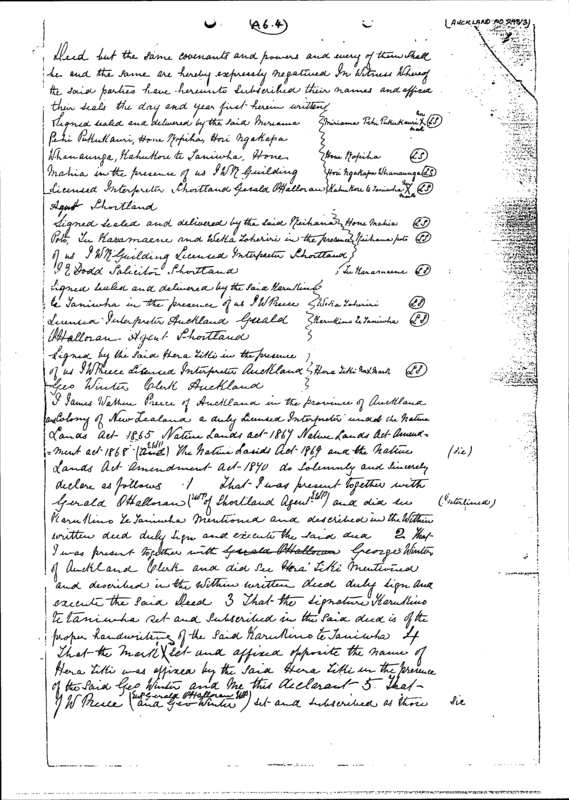 (A6.4)
(AUCKLAND NO 298/3)
Deed but the same covenants and powers and every of them shall
be and the same are hereby expressly negatived In Witness Whereof
the said parties have hereunto subscribed their names and affixed
their seals the day and year first herein written
Signed sealed and delivered by the said Miriama } Miriama Pehi Pukukauri X her mark LS
Pehi Pukukauri, Hone Nopiha, Hori Ngakapa
Whanaunga, Kahukore te Taniwha, Hone } Hone Nopiha LS
Mahia in the presence of us J W R Guilding } Hori Ngakapa Whanaunga LS
Licensed Interpreter Shortland Gerald OHalloran } Kahukore te Taniwha X mark LS
Agent Shortland
Signed sealed and delivered by the said Reihana } Hone Mahia LS
Poto, Te Karamaene and Weka Toheriri in the presence } Reihana poto LS
of us J W R Guilding Licensed Interpreter Shortland
J E Dodd Solicitor Shortland } Te Karamaene LS
Signed sealed and delivered by the said Karukino
te Taniwha in the presence of us J W Preece } Weka Toheriri LS
Licensed Interpreter Auckland Gerald } Karukino te Taniwha LS
OHalloran Agent Shortland
Signed by the said Hera Titki in the presence
of us J W Preece Licensed Interpreter Auckland } Hera Titki X Mark LS
Geo Winter Clerk Auckland
I James Wathen Preece of Auckland in the province of Auckland
Colony of New Zealand a duly Licensed Interpreter under the Native
Lands Act 1865 Native Lands Act 1867 Native Lands Act Amend=
=ment Act 1868 (and) The Native Lands Act 1869 and the Native (sic)
Lands Act Amendment Act 1870 do Solemnly and Sincerely
declare as follows 1 That I was present together with
Gerald OHalloran (of Shortland Agent) and did see (Interlined)
Karukino Te Taniwha Mentioned and described in the Within
written deed duly sign and execute the said deed 2 That
I was present together with Gerald OHalloran George Winter
of Auckland Clerk and did see Hera Titki Mentioned
and described in the within written deed duly sign and
execute the said Deed 3 That the signature Karukino
te taniwha set and subscribed in the said deed is of the
proper handwriting of the said Karukino te Taniwha 4
That the Mark X set and affixed opposite the name of
Hera Titki was affixed by the said Hera Titki in the presence
of the said Geo Winter and Me this declarant 5 That
J W Preece (Gerald OHalloran and Geo Winter) set and subscribed as those sic